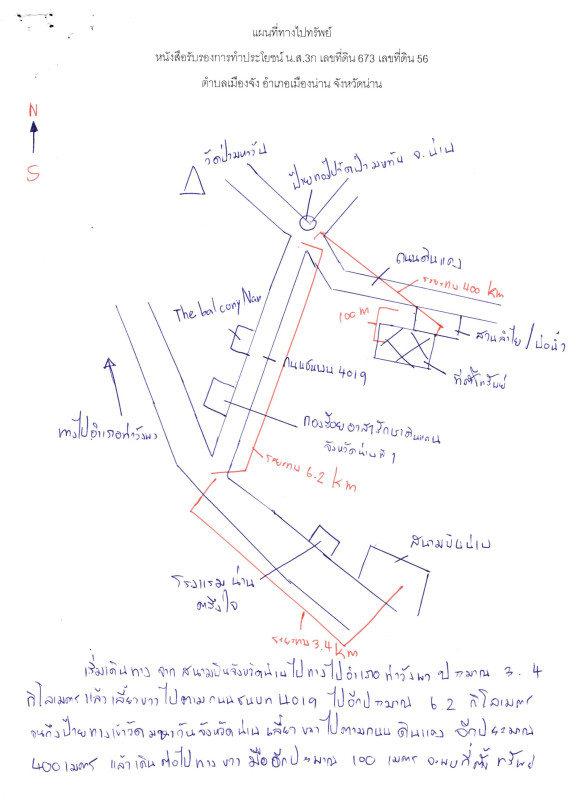 แผนที่ทางไปทรัพย์
หนังสือรับรองการทำประโยชน์ น.ส.3ก เลขที่ดิน 673 เลขที่ดิน 56
ตำบลเมืองจัง อำเภอเมืองน่าน จังหวัดน่าน
N
S
วัดป่ามหาวัน
ป้ายทางไปวัดป่ามหาวัน จ.น่าน
ถนนดินแดง
ระยะทาง 400 km
The balcony Nan
100 m
สวนลำไย/บ่อน้ำ
ถนนชนบท 4019
ที่ตั้งทรัพย์
ทางไปอำเภอท่าวังผา
กองร้อยอาสารักษาดินแดน
จังหวัดน่านที่ 1
ระยะทาง 6.2 km
สนามบินน่าน
โรงแรม น่าน
ตรึงใจ
ระยะทาง 3.4 km
เริ่มเดินทาง จาก สนามบินจังหวัดน่านไปทางไปอำเภอ ท่าวังผา ประมาณ 3.4
กิโลเมตร แล้ว เลี้ยวขวา ไปตามถนนชนบท 4019 ไปอีกประมาณ 6.2 กิโลเมตร
จนถึงป้ายทางเข้าวัด มหาวันจังหวัดน่าน เลี้ยว ขวา ไปตามถนน ดินแดง อีกประมาณ
400 เมตร แล้วเดินต่อไปทาง ขวา มืออีกประมาณ 100 เมตร จะพบที่ตั้ง ทรัพย์